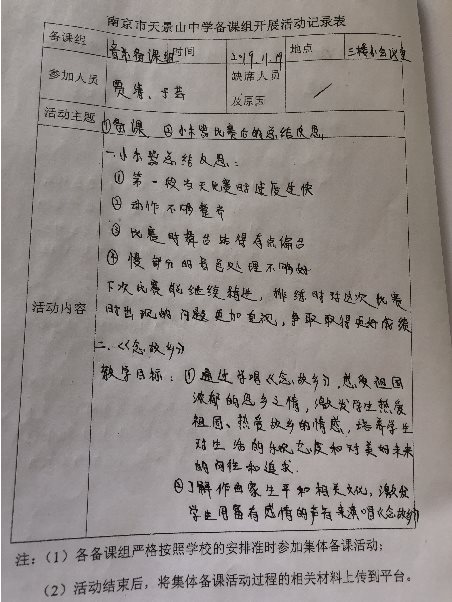 南京市天景山中学备课组开展活动记录表
备课组 音乐备课组 时间 2019.11.19 地点 三楼办公室
参加人员 贾 、于芸 缺席人员及原因 /
活动主题 ①备课 ②小乐器比赛后的总结反思
活动内容
一、小乐器总结反思:
① 第一段当天比赛时速度过快
② 动作不够整齐
③ 比赛时舞台站得有点偏台
④ 慢部分的音色处理不够好
下次比赛能继续精进,排练时对这次比赛
时出现的问题更加重视,争取取得更好成绩
二、《念故乡》
教学目标:① 通过学唱《念故乡》,感受祖国
浓郁的思乡之情,激发学生热爱
祖国、热爱故乡的情感,培养学生
对生活的乐观态度和对美好未来
的向往和追求.
②了解作曲家生平和相关文化,激发
学生用富有感情的声音来演唱《念故乡》
注:(1)各备课组严格按照学校的安排准时参加集体备课活动;
(2)活动结束后,将集体备课活动过程的相关材料上传到平台。